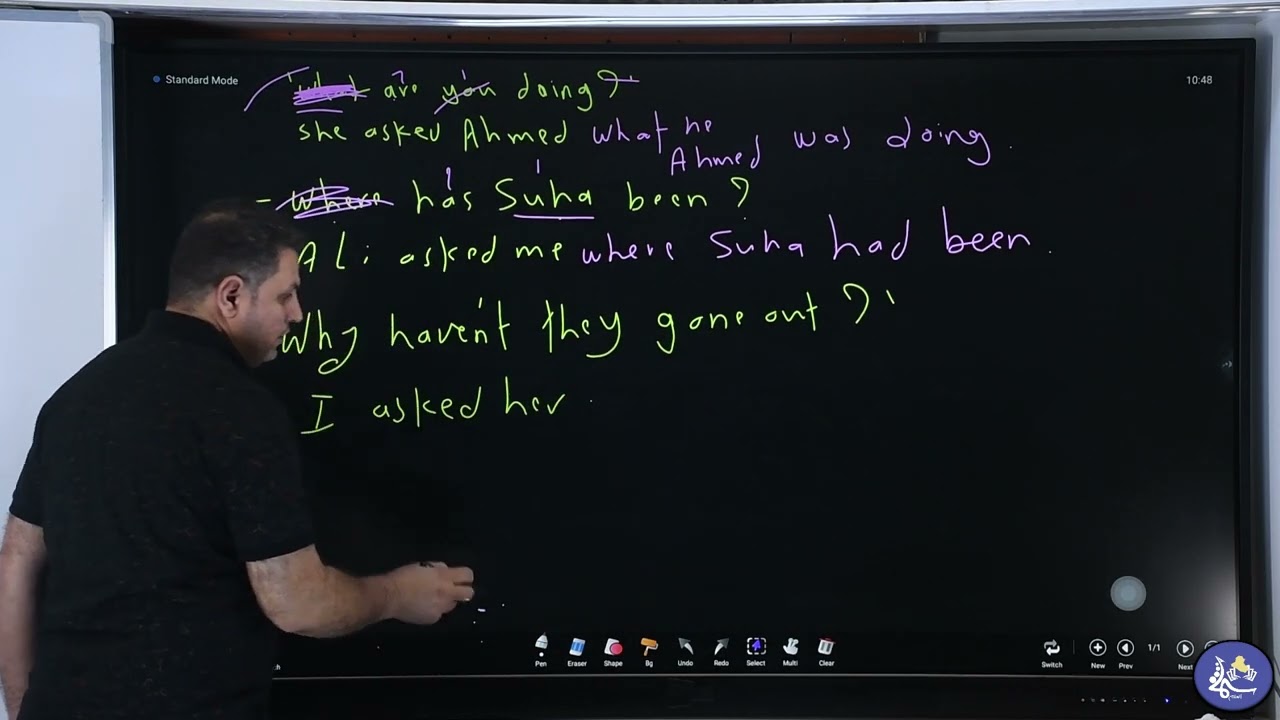 Standard Mode
10:48
What are you doing?
she asked Ahmed what he was doing.
Ahmed
- Where has Suha been?
Ali asked me where Suha had been.
Why haven't they gone out?'
I asked her.
Pen Eraser Shape Bg Undo Redo Select Multi Clear
Switch New Prev 1/1 Next